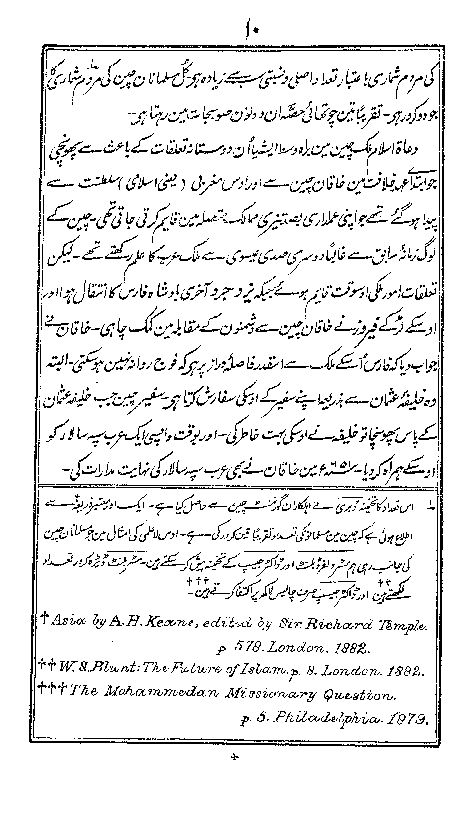 ۱۰
کی مردم شماری باعتبار تعداد اصلی و نسبتی سب سے زیادہ ہو کل مسلمانان چین کی مردم شماری کا
جو دو کروڑ ہو۔ تقریباً تین چوتھائی حصہ ان دونوں صوبجات میں رہتا ہو۔
دعاۃ اسلام ملک چین میں براہ وسط ایشیا اُن دوستانہ تعلقات کے باعث سے پھونچے
جو ابتداے عہد خلافت میں خاقان چین سے اور اوس مغربی (یعنی اسلامی) سلطنت سے
پیدا ہوگئے تھے جو اپنی عملداری بہت تیزی ممالک متصلہ میں قایم کرتی جاتی تھی۔ چین کے
لوگ زمانہ سابق سے غالباً دوسری صدی عیسوی سے ملک عرب کا علم رکھتے تھے۔ لیکن
تعلقات امور ملکی اوسوقت قایم ہوئے جبکہ یزدجرد آخری بادشاہ فارس کا انتقال ہوا اور
اوسکے لڑکے فیروز نے خاقان چین سے دشمنوں کے مقابلہ میں کمک چاہی۔ خاقان نے
جواب دیا کہ فارس اُسکے ملک سے اسقدر فاصلہ دراز پر ہو کہ فوج روانہ نہیں ہوسکتی۔ البتہ
وہ خلیفہ عثمان سے بذریعہ اپنے سفیر کے اوسکی سفارش کرتا ہو۔ سفیر چین جب خلیفہ عثمان
کے پاس پھونچا تو خلیفہ نے اوسکی بہت خاطر کی۔ اور بوقت واپسی ایک عرب سپہ سالار کو
اوسکے ہمراہ کر دیا۔ ۶۵۱ء میں خاقان نے بھی عرب سپہ سالار کی نہایت مدارات کی۔
اس تعداد کا تخمینہ نے اہلکاران گورنمنٹ چین سے حاصل کیا ہے۔ ایک اور معتبر ذریعہ سے
اطلاع ہوئی ہے کہ چین میں مسلمانونکی تعداد تقریباً تین کروڑ کی ہے۔ اوس لاعلمی کی امثال میں جو مسلمانان چین
کی جانب رہی ہم مسٹر بلنٹ اور ڈاکٹر جیسپ کے تخمینہ پیش کر سکتے ہیں۔ مسٹر بلنٹ ڈیڑہ کروڑ تعداد
لکھتے ہیں†† اور ڈاکٹر جیسپ صرف چالیس لاکھ پر اکتفا کرتے ہیں†††۔
† Asia by A. H. Keane, edited by Sir Richard Temple.
p 578. London. 1882.
†† W. S. Blunt: The Future of Islam, p. 8. London. 1882.
††† The Mohammedan Missionary Question.
p. 5. Philadelphia. 1979.